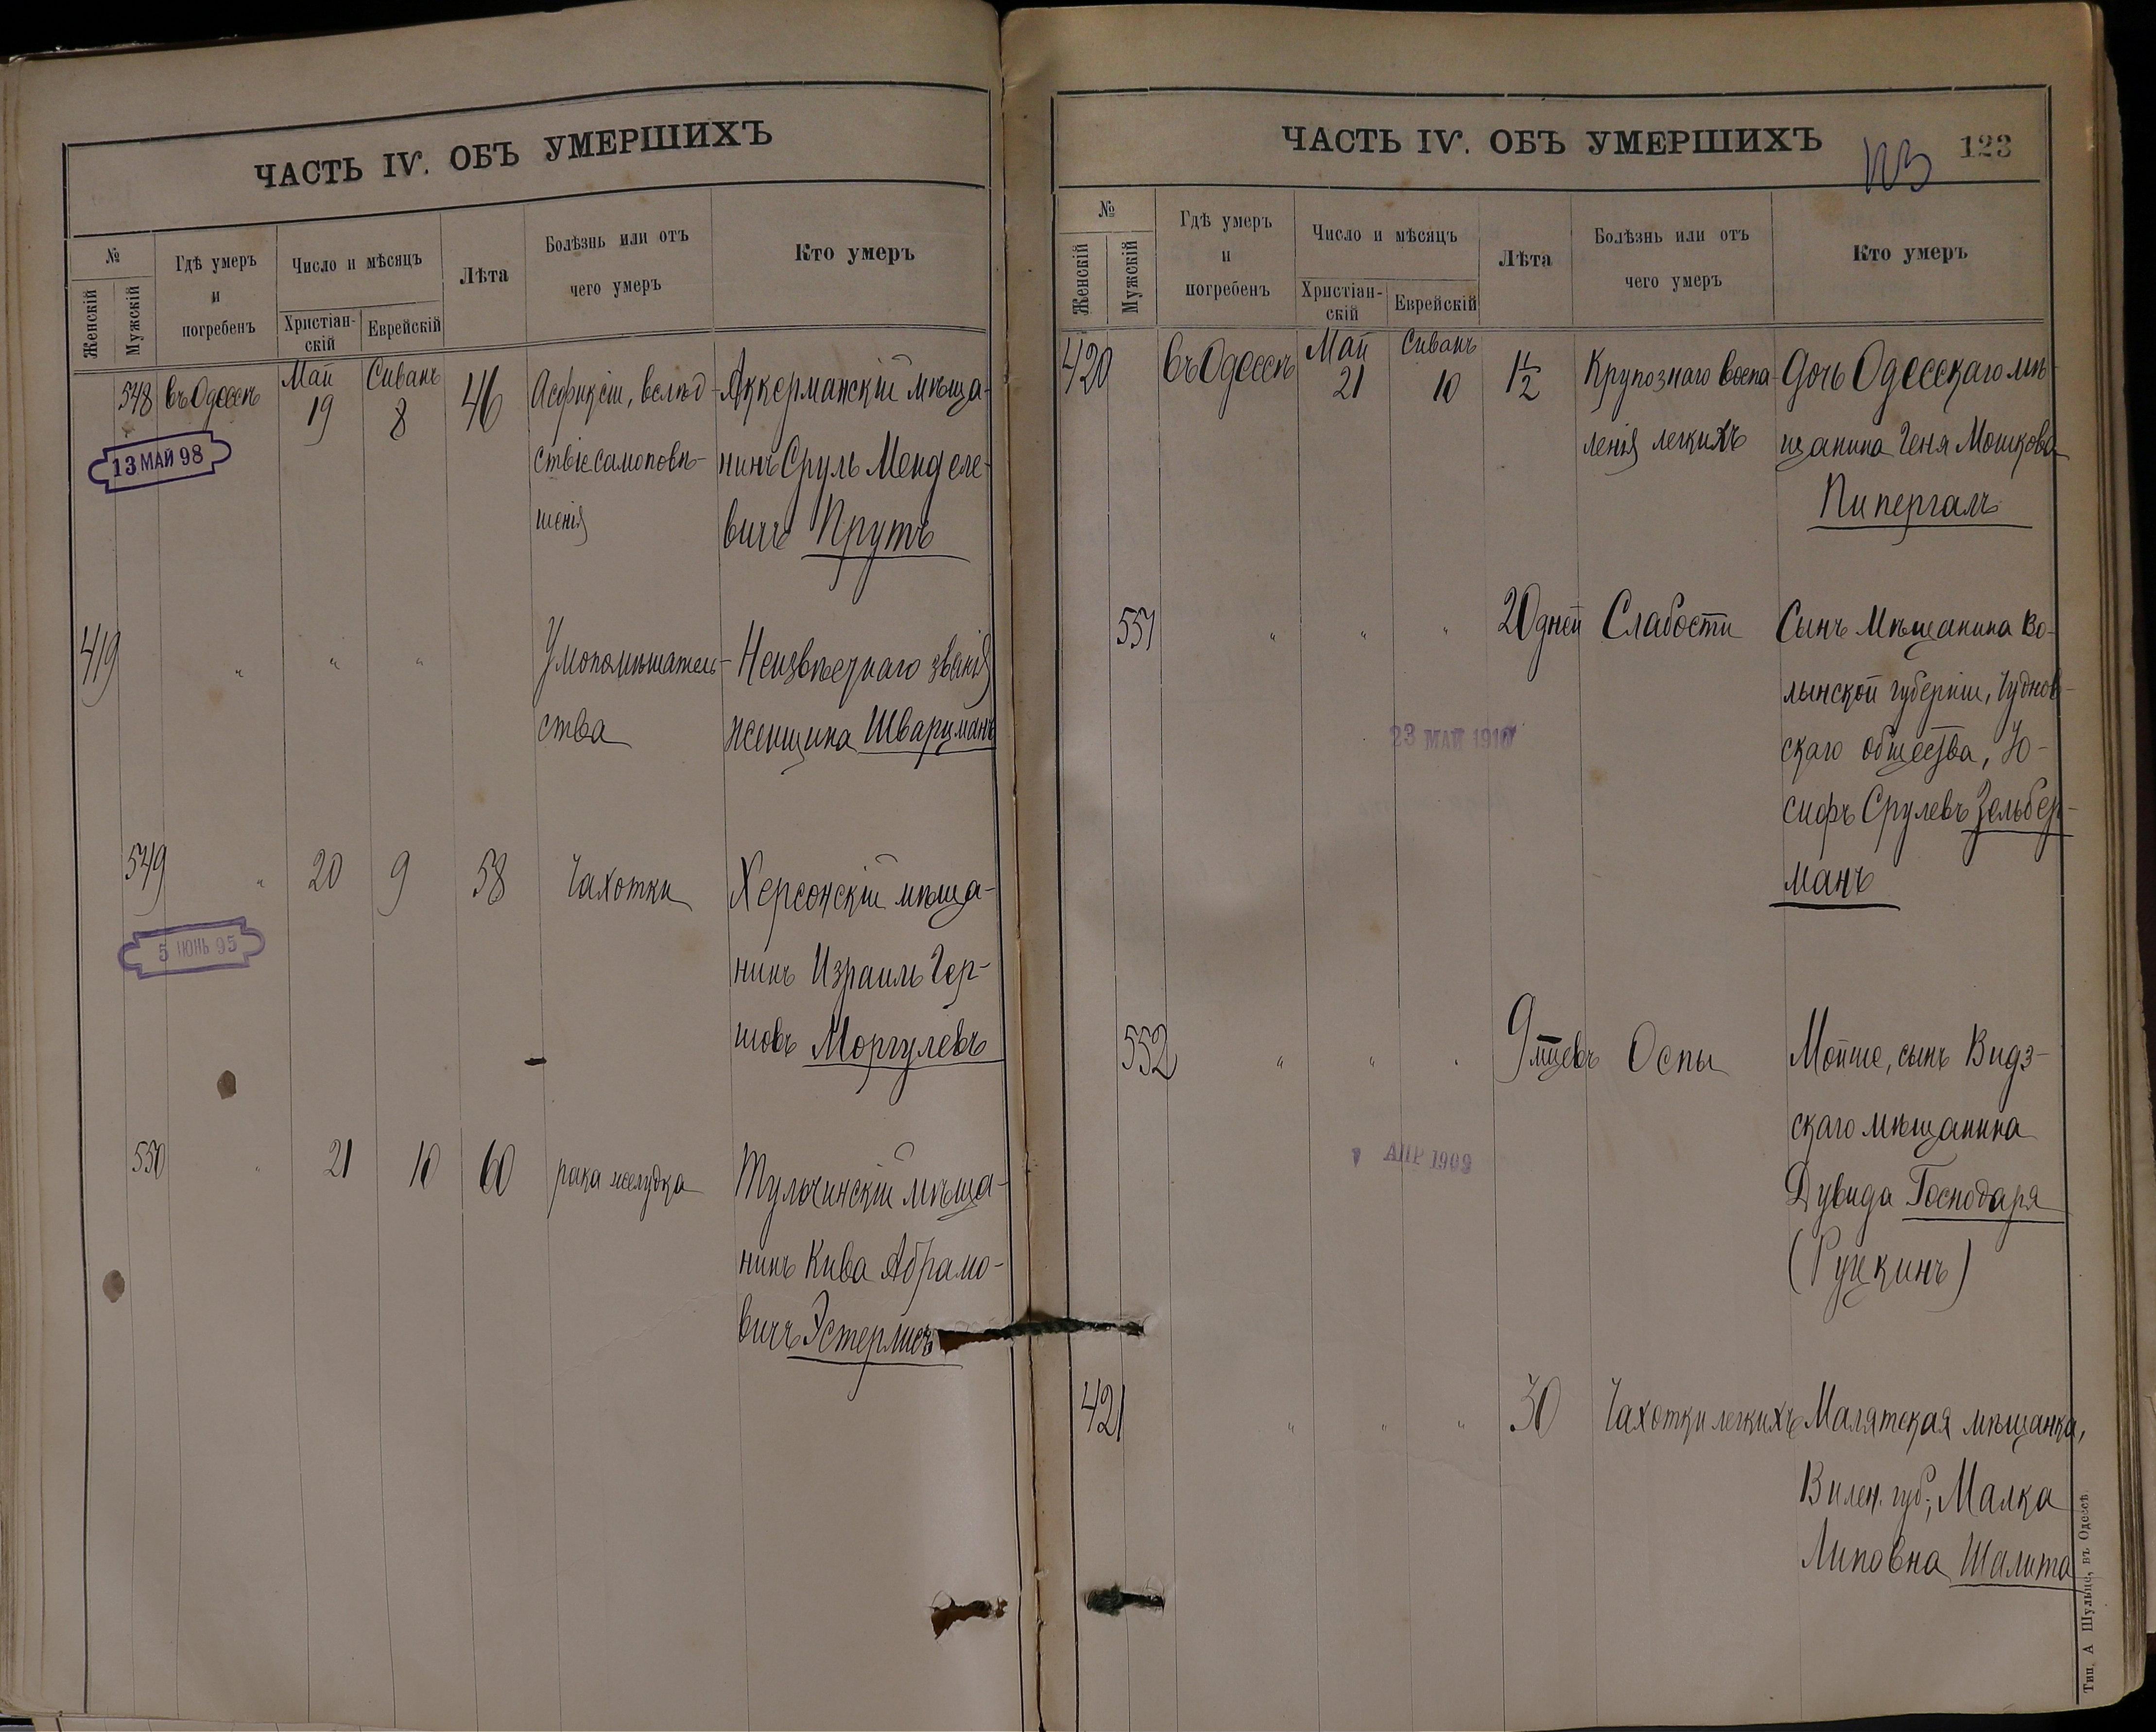 ЧАСТЬ IV. ОБЪ УМЕРШИХЪ
№
Женскій
Мужскій
Гдѣ умеръ
и
погребенъ
Число и мѣсяцъ
Христіан-
скій
Еврейскій
Лѣта
Болѣзнь или отъ
чего умеръ
Кто умеръ
548 въ Одессѣ Май 19 Сиванъ 8 46 Асфиксіи, вслѣд- Аккерманскій мѣща-
ствіе самоповѣ- нинъ Сруль Менделе-
шенія вичъ Прутъ
13 МАЙ 98
419 " " " Умопомѣшатель- Неизвѣстнаго званія
ства женщина Шварцманъ
549 " 20 9 58 Чахотки Херсонскій мѣща-
нинъ Израиль Гер-
шовъ Моргулевъ
5 ІЮНЬ 95
550 " 21 10 60 рака желудка Тульчинскій мѣща-
нинъ Кива Абрамо-
вичъ Эстерлисъ
ЧАСТЬ IV. ОБЪ УМЕРШИХЪ
123
№
Женскій
Мужскій
Гдѣ умеръ
и
погребенъ
Число и мѣсяцъ
Христіан-
скій
Еврейскій
Лѣта
Болѣзнь или отъ
чего умеръ
Кто умеръ
420 въ Одессѣ Май 21 Сиванъ 10 1½ Крупознаго воспа- Дочь Одесскаго мѣ-
ленія легкихъ щанина Геня Мошкова
Пипергаль
551 " " " 20 дней Слабости Сынъ Мѣщанина Во-
лынской губерніи, Чуднов-
скаго общества, Іо-
сифъ Срулевъ Зельбер-
манъ
23 МАЙ 1910
552 " " " 9 мцевъ Оспы Мойше, сынъ Видз-
скаго мѣщанина
Дувида Господаря
(Руцкинъ)
АПР 1909
421 " " " 30 Чахотки легкихъ Малятская мѣщанка,
Вилен. губ., Малка
Липовна Шалита
Тип. А Шульце, въ Одессѣ.